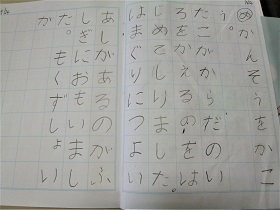 めかんそうをかこ
う。
たこがからだのい
ろをかえるのをは
じめてしりました。
はまぐりにつよい
あしがあるのがふ
しぎにおもいまし
た。もくずしょい
が